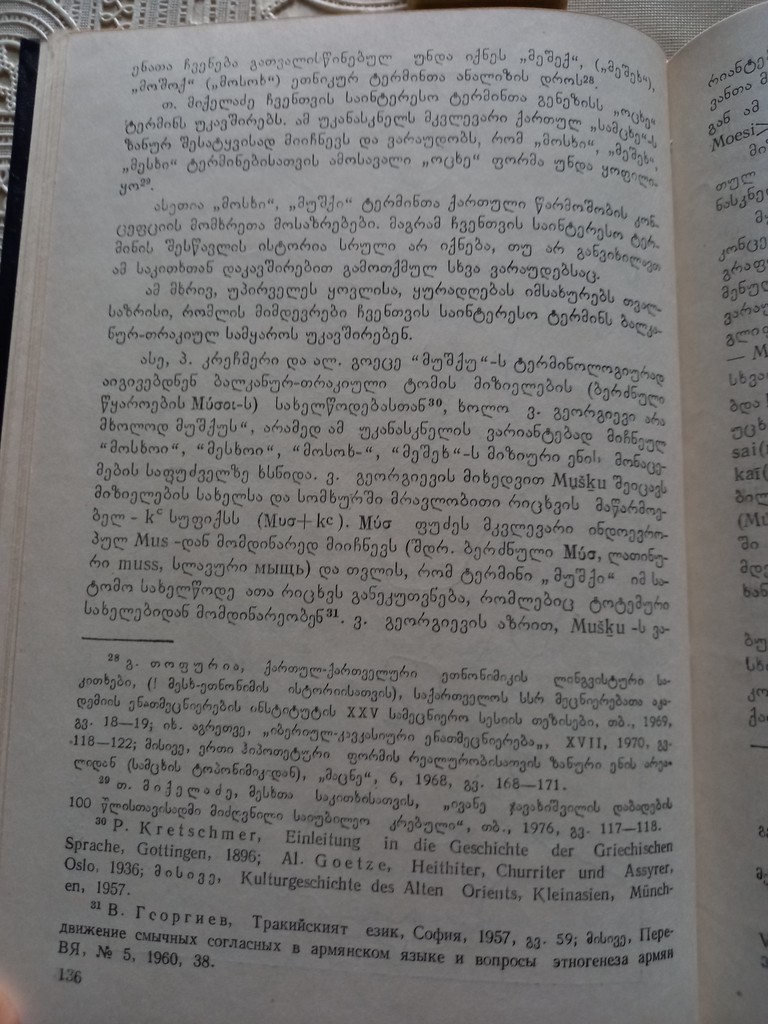 ენათა ჩვენება გათვალისწინებულ უნდა იქნეს „მეშექ“, („მეშეხ“),
„მოშოქ“ („მოსოხ“) ეთნიკურ ტერმინთა ანალიზის დროს²⁸.
თ. მიქელაძე ჩვენთვის საინტერესო ტერმინთა გენეზისს „ოცხე“
ტერმინს უკავშირებს. ამ უკანასკნელს მკვლევარი ქართულ „სამცხე“-ს
ზანურ შესატყვისად მიიჩნევს და ვარაუდობს, რომ „მოსხი“, „მეშეხ“,
„მესხი“ ტერმინებისათვის ამოსავალი „ოცხე“ ფორმა უნდა ყოფილი-
ყო²⁹.
ასეთია „მოსხი“, „მუშქი“ ტერმინთა ქართული წარმოშობის კონ-
ცეფციის მომხრეთა მოსაზრებები. მაგრამ ჩვენთვის საინტერესო ტერ-
მინის შესწავლის ისტორია სრული არ იქნება, თუ არ განვიხილავთ
ამ საკითხთან დაკავშირებით გამოთქმულ სხვა ვარაუდებსაც.
ამ მხრივ, უპირველეს ყოვლისა, ყურადღებას იმსახურებს თვალ-
საზრისი, რომლის მიმდევრები ჩვენთვის საინტერესო ტერმინს ბალკა-
ნურ-თრაკიულ სამყაროს უკავშირებენ.
ასე, პ. კრეჩმერი და ალ. გოეცე “მუშქუ“-ს ტერმინოლოგიურად
აიგივებდნენ ბალკანურ-თრაკიული ტომის მიზიელების (ბერძნული
წყაროების Μύσοι-ს) სახელწოდებასთან³⁰, ხოლო ვ. გეორგიევი არა
მხოლოდ მუშქუს“, არამედ ამ უკანასკნელის ვარიანტებად მიჩნეულ
“მოსხოი“, “მესხოი“, “მოსოხ-“, “მეშეხ“-ს მიზიური ენის მონაცე-
მების საფუძველზე ხსნიდა. ვ. გეორგიევის მიხედვით Mušḳu შეიცავს
მიზიელების სახელსა და სომხურში მრავლობითი რიცხვის მაწარმოე-
ბელ - kᶜ სუფიქსს (Μυσ+kc). Μύσ ფუძეს მკვლევარი ინდოევრო-
პულ Mus -დან მომდინარედ მიიჩნევს (შდრ. ბერძნული Μύσ, ლათინუ-
რი muss, სლავური мыщь) და თვლის, რომ ტერმინი „მუშქი“ იმ სა-
ტომო სახელწოდე ათა რიცხვს განეკუთვნება, რომლებიც ტოტემური
სახელებიდან მომდინარეობენ³¹. ვ. გეორგიევის აზრით, Mušḳu -ს ვა-
²⁸ გ. თოფურია, ქართულ-ქართველური ეთნონიმიკის ლინგვისტური სა-
კითხები, (! მესხ-ეთნონიმის ისტორიისათვის), საქართველოს სსრ მეცნიერებათა აკა-
დემიის ენათმეცნიერების ინსტიტუტის XXV სამეცნიერო სესიის თეზისები, თბ., 1969,
გვ. 18—19; იხ. აგრეთვე, „იბერიულ-კავკასიური ენათმეცნიერება„, XVII, 1970, გვ.
118—122; მისივე, ერთი ჰიპოთეტური ფორმის რეალურობისათვის ზანური ენის არეა-
ლიდან (სამცხის ტოპონიმიკ-დან), „მაცნე“, 6, 1968, გვ. 168—171.
²⁹ თ. მიქელაძე, მესხთა საკითხისათვის, „ივანე ჯავახიშვილის დაბადების
100 წლისთავისადმი მიძღვნილი საიუბილეო კრებული“, თბ., 1976, გვ. 117—118.
³⁰ P. Kretschmer, Einleitung in die Geschichte der Griechischen
Sprache, Gottingen, 1896; Al. Goetze, Heithiter, Churriter und Assyrer,
Oslo, 1936; მისივე, Kulturgeschichte des Alten Orients, Kleinasien, Münch-
en, 1957.
³¹ В. Георгиев, Тракийският език, София, 1957, გვ. 59; მისივე, Пере-
движение смычных согласных в армянском языке и вопросы этногенеза армян
ВЯ, № 5, 1960, 38.
136